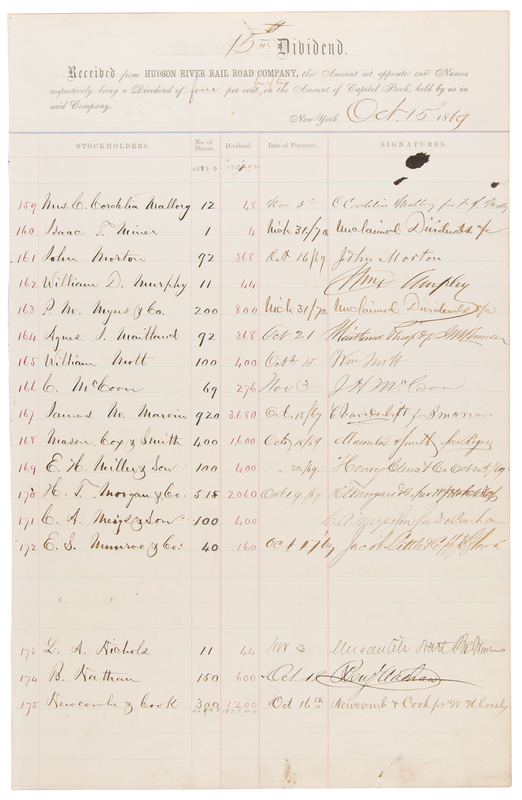 15th Dividend.
Received from HUDSON RIVER RAIL ROAD COMPANY, the Amount set opposite our Names
respectively, being a Dividend of four per cent. on the Amount of Capital Stock held by us in
said Company.
New-York Oct. 15th 1869
STOCKHOLDERS. No. of Shares. Dividend. Date of Payment. SIGNATURES.
159 Mrs. C. Cordelia Mallory 12 48 Nov 3d
160 Isaac T. Miner 1 4 Mch 31/70 Unclaimed Dividends a/c
161 John Morton 92 368 Oct 16/69 John Morton
162 William D. Murphy 11 44 Wm D Murphy
163 P. M. Myers & Co. 200 800 Mch 31/70. Unclaimed Dividends a/c
164 Agnes S. Maitland 92 368 Oct 21 Maitland Phelps
165 William Mott 100 400 Octo 15 Wm Mott
166 C. McCoon 69 276 Nov 3 J H McCoon
167 James M. Marvin 920 3,680 Oct. 15/69 C Vanderbilt for J M Marvin
168 Mason, Cox & Smith 400 1,600 Oct 15/69
169 E. H. Miller & Son 100 400 " 20/69. Henry Clews & Co Oct 20/69
170 H. T. Morgan & Co. 515 2,060 Oct 19/69
171 C. A. Meigs & Son 100 400
172 E. S. Munroe & Co. 40 160 Oct 19/69 Jacob Little & Co
173 L. A. Nichols 11 44 Nov 3
174 B. Nathan 150 600 Oct 18 Benj Nathan
175 Newcombe & Cook 300 1,200 Oct 16th Newcomb & Cook pr W. H.